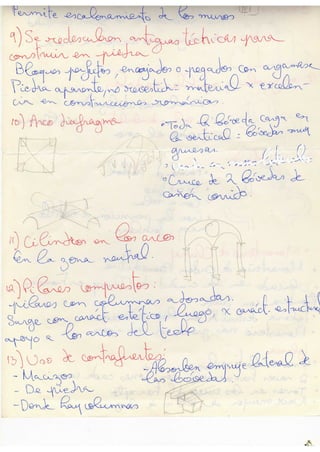 Permite escalonamiento de los muros
9) Se redescubren antiguas técnicas para
construir en piedra
Bloques perfectos, encajados o pegados con argamasa
Piedra aparente, no revestida = material x excelen-
cia en construcciones románicas.
10) Arco diafragma
• Toda la bóveda carga en
la vertical = bóvedas muy
gruesas.
• Cruce de 2 bóvedas de
cañón corrido.
11) Cilindros en los arcos
En la zona neutral.
12) Pilares compuestos:
- pilares con columnas adosadas.
Surge con caráct estético, luego, x caráct. estructural
apoyo a los arcos del techo
13) Uso de contrafuertes
- Macizos
- De piedra
- Donde hay columnas
- Absorben empuje lateral de
las bóvedas